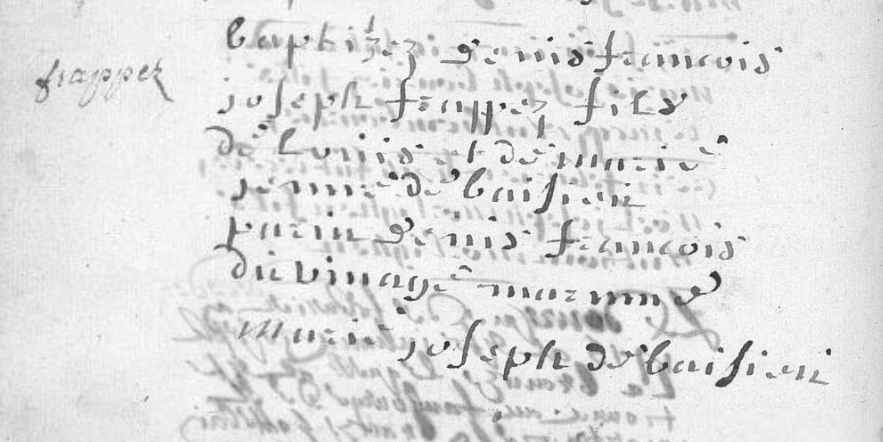 frappez
baptizez denis francois
joseph frappez fils
de Louis et de marie
jenne de baisieu
parin denis francois
du vinage marinne
marie joseph de baisieu